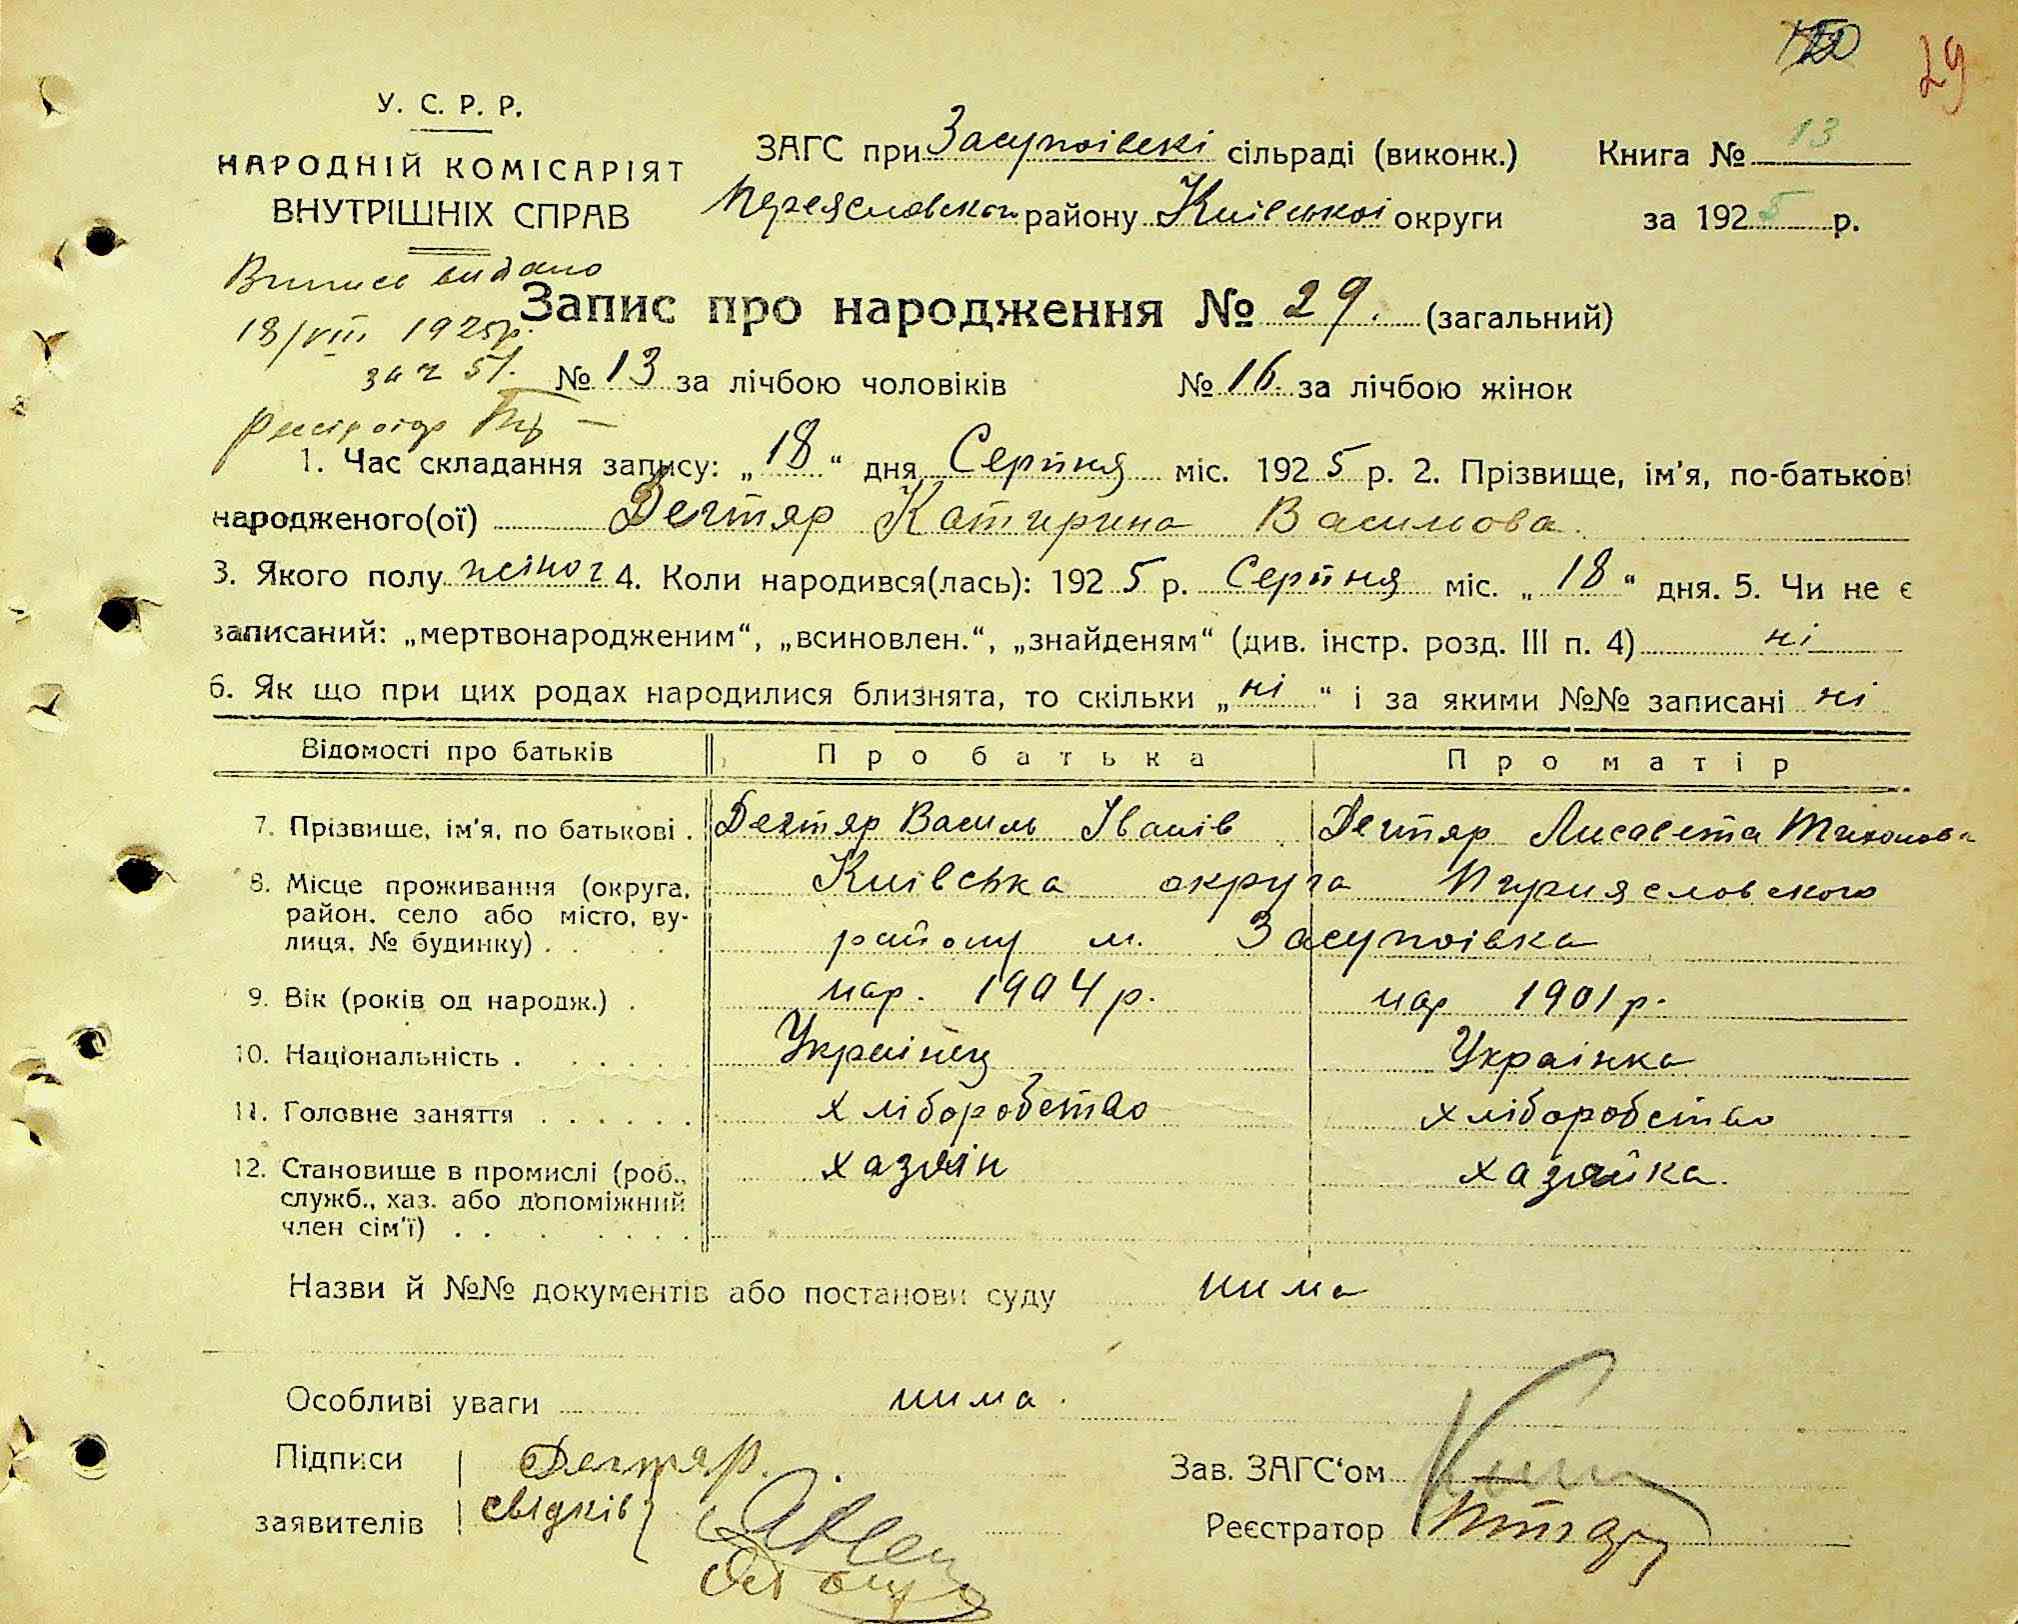 29
У. С. Р. Р.
НАРОДНІЙ КОМІСАРІЯТ
ВНУТРІШНІХ СПРАВ
ЗАГС при Засупоівскі сільраді (виконк.)
Переясловского району Київської округи
Книга № 13
за 1925 р.
Випись видано
18/VIII 1925р.
за ч 51.
Реєстратор
Запис про народження № 29. (загальний)
№ 13 за лічбою чоловіків № 16. за лічбою жінок
1. Час складання запису: „18“ дня Серпня міс. 1925 р. 2. Прізвище, ім'я, по-батькові
народженого(ої) Дегтяр Катирина Василова.
3. Якого полу жіноч 4. Коли народився(лась): 1925 р. Серпня міс. „18“ дня. 5. Чи не є
записаний: „мертвонародженим“, „всиновлен.“, „знайденям“ (див. інстр. розд. III п. 4) ні
6. Як що при цих родах народилися близнята, то скільки „ні“ і за якими №№ записані ні
Відомості про батьків Про батька Про матір
7. Прізвище, ім'я, по батькові . Дегтяр Василь Іванів Дегтяр Лисавета Тихонова
8. Місце проживання (округа, район, село або місто, вулиця, № будинку) . . Київська округа Пириясловского
району м. Засупоівка
9. Вік (років од народж.) . нар. 1904 р. нар 1901 р.
10. Національність . Украінец Украінка
11. Головне заняття . . . . . . хліборобство хліборобство
12. Становище в промислі (роб., служб., хаз. або допоміжний член сім'ї) . . хазяін хазяйка.
Назви й №№ документів або постанови суду нима
Особливі уваги нима.
Підписи Дегтяр.
заявителів свідків
Зав. ЗАГС'ом
Реєстратор